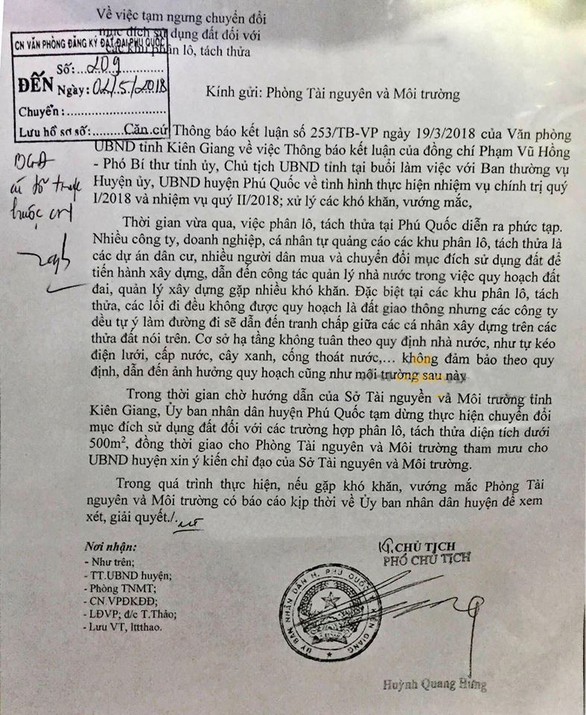 Về việc tạm ngưng chuyển đổi
mục đích sử dụng đất đối với
các khu phân lô, tách thửa
CN VĂN PHÒNG ĐĂNG KÝ ĐẤT ĐAI PHÚ QUỐC
ĐẾN
Số: 209
Ngày: 02/5/2018
Chuyển:
Lưu hồ sơ số:
Kính gửi: Phòng Tài nguyên và Môi trường
Căn cứ Thông báo kết luận số 253/TB-VP ngày 19/3/2018 của Văn phòng
UBND tỉnh Kiên Giang về việc Thông báo kết luận của đồng chí Phạm Vũ Hồng
- Phó Bí thư tỉnh ủy, Chủ tịch UBND tỉnh tại buổi làm việc với Ban thường vụ
Huyện ủy, UBND huyện Phú Quốc về tình hình thực hiện nhiệm vụ chính trị quý
I/2018 và nhiệm vụ quý II/2018; xử lý các khó khăn, vướng mắc,
Thời gian vừa qua, việc phân lô, tách thửa tại Phú Quốc diễn ra phức tạp.
Nhiều công ty, doanh nghiệp, cá nhân tự quảng cáo các khu phân lô, tách thửa là
các dự án dân cư, nhiều người dân mua và chuyển đổi mục đích sử dụng đất để
tiến hành xây dựng, dẫn đến công tác quản lý nhà nước trong việc quy hoạch đất
đai, quản lý xây dựng gặp nhiều khó khăn. Đặc biệt tại các khu phân lô, tách
thửa, các lối đi đều không được quy hoạch là đất giao thông nhưng các công ty
đều tự ý làm đường đi sẽ dẫn đến tranh chấp giữa các cá nhân xây dựng trên các
thửa đất nói trên. Cơ sở hạ tầng không tuân theo quy định nhà nước, như tự kéo
điện lưới, cấp nước, cây xanh, cống thoát nước,... không đảm bảo theo quy
định, dẫn đến ảnh hưởng quy hoạch cũng như môi trường sau này
Trong thời gian chờ hướng dẫn của Sở Tài nguyên và Môi trường tỉnh
Kiên Giang, Ủy ban nhân dân huyện Phú Quốc tạm dừng thực hiện chuyển đổi
mục đích sử dụng đất đối với các trường hợp phân lô, tách thửa diện tích dưới
500m², đồng thời giao cho Phòng Tài nguyên và Môi trường tham mưu cho
UBND huyện xin ý kiến chỉ đạo của Sở Tài nguyên và Môi trường.
Trong quá trình thực hiện, nếu gặp khó khăn, vướng mắc Phòng Tài
nguyên và Môi trường có báo cáo kịp thời về Ủy ban nhân dân huyện để xem
xét, giải quyết./.
Nơi nhận:
- Như trên;
- TT.UBND huyện;
- Phòng TNMT;
- CN VPĐKĐĐ;
- LĐVP; đ/c T.Thảo;
- Lưu VT, lttthao.
KT. CHỦ TỊCH
PHÓ CHỦ TỊCH
ỦY BAN NHÂN DÂN H. PHÚ QUỐC
Huỳnh Quang Hưng